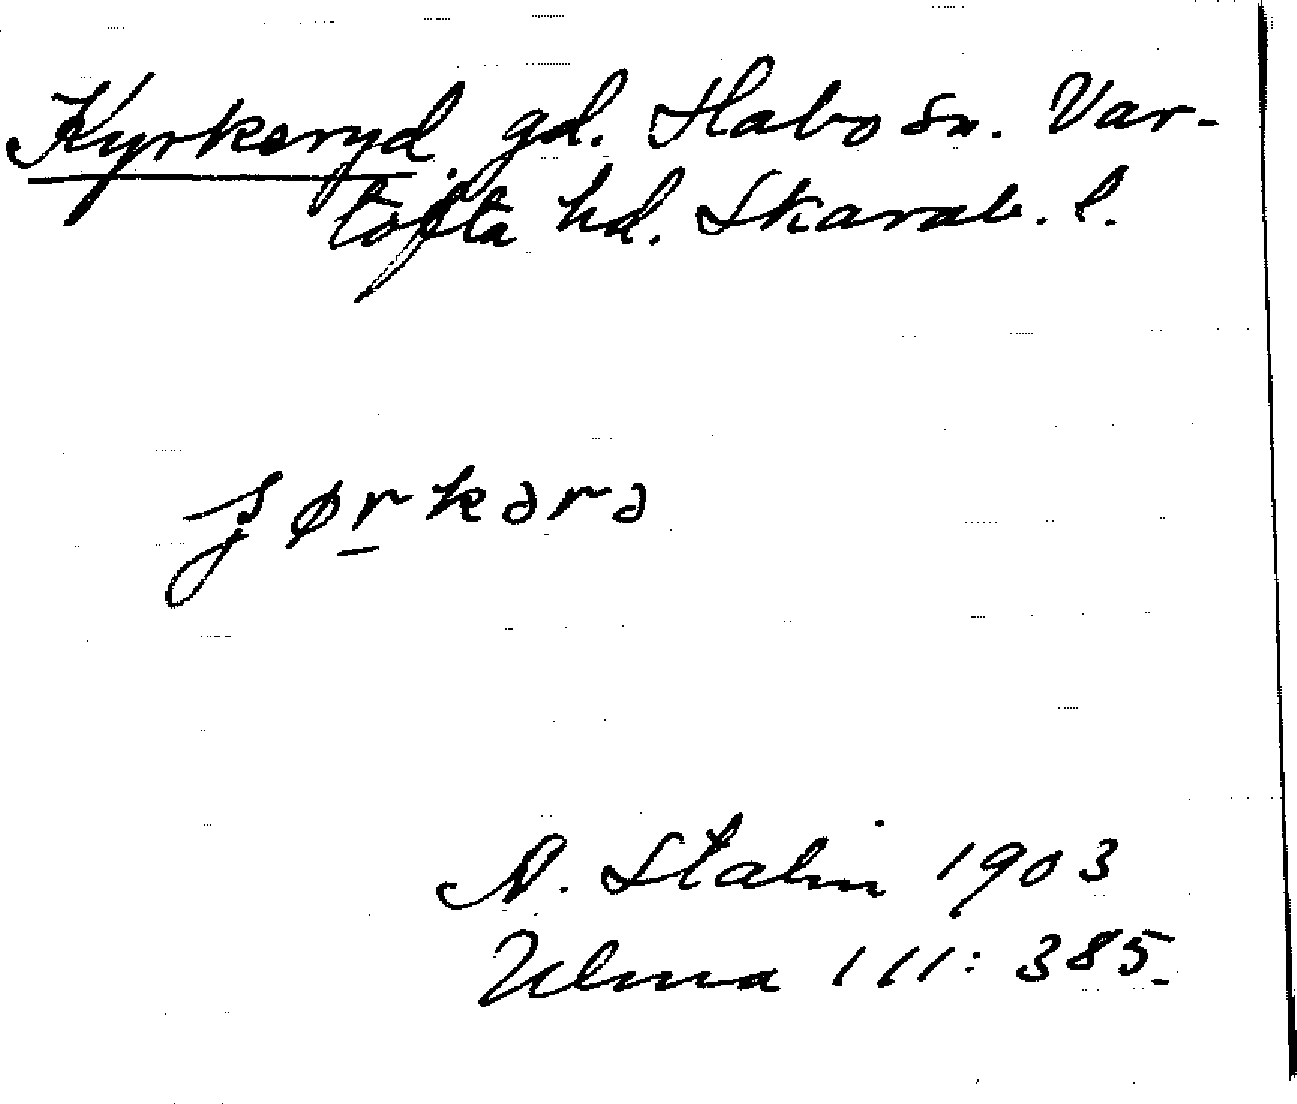 Kyrkeryd gd. Habo sn. Var-
tofta hd. Skarab. l.
ʂørkərə
N. Stalin 1903
Ulma 111: 385.